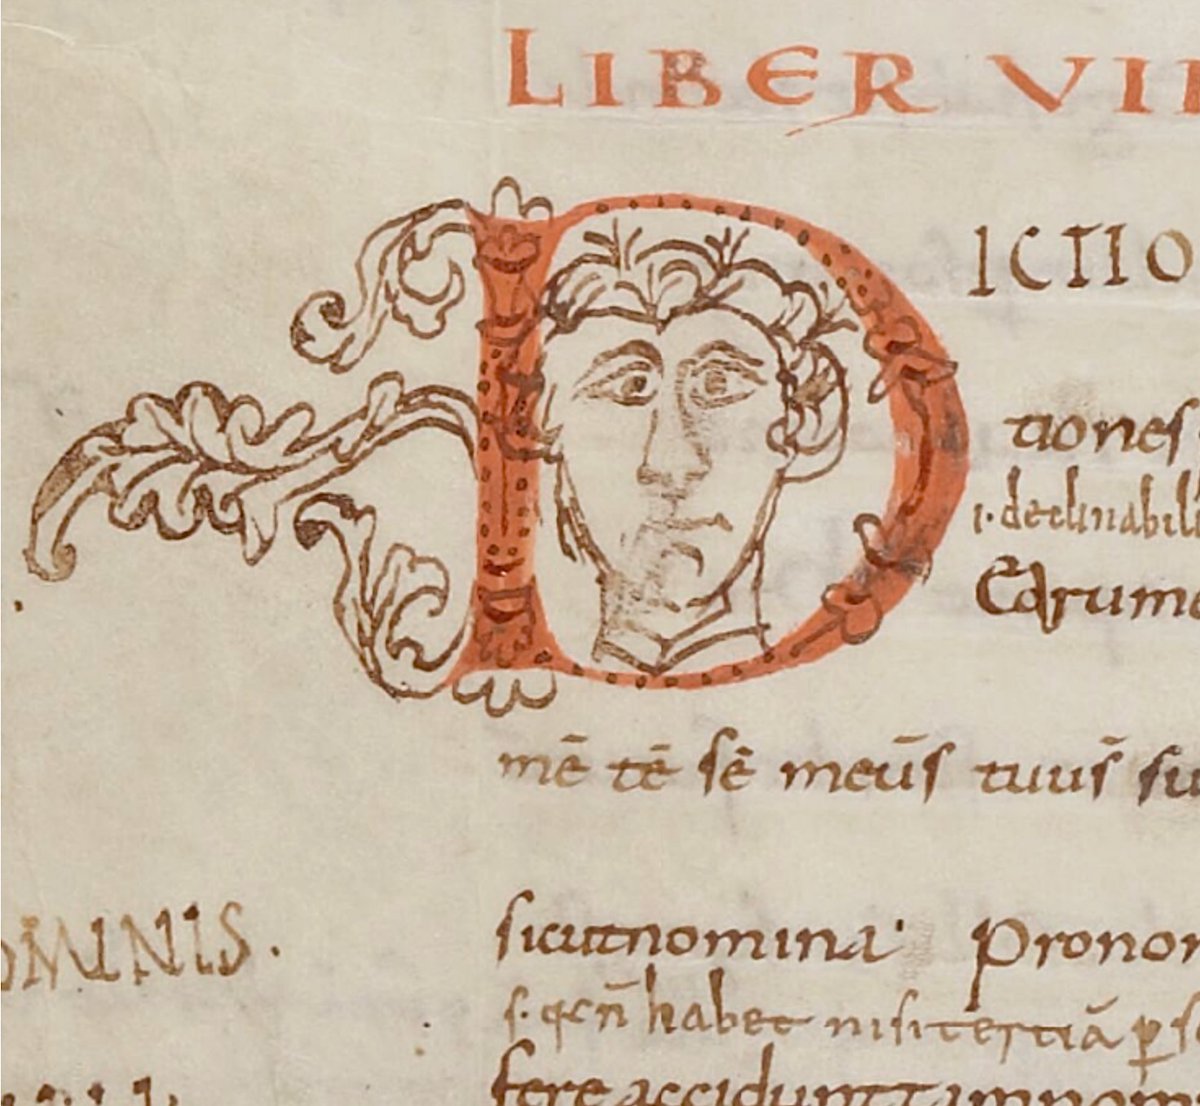 LIBER VII
DICTIO
tiones
i. declinabili
Earum
mē tē sē meūs tuūs su
OMINIS.
sicut nomina· Pronom
s. q̄ n̄ habet nisi tertiā p̱ s
fere accidunt tam nom